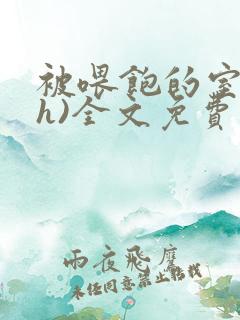 被喂飽的室
h)全文免費
雨夜飛麐
未经同意禁止转载